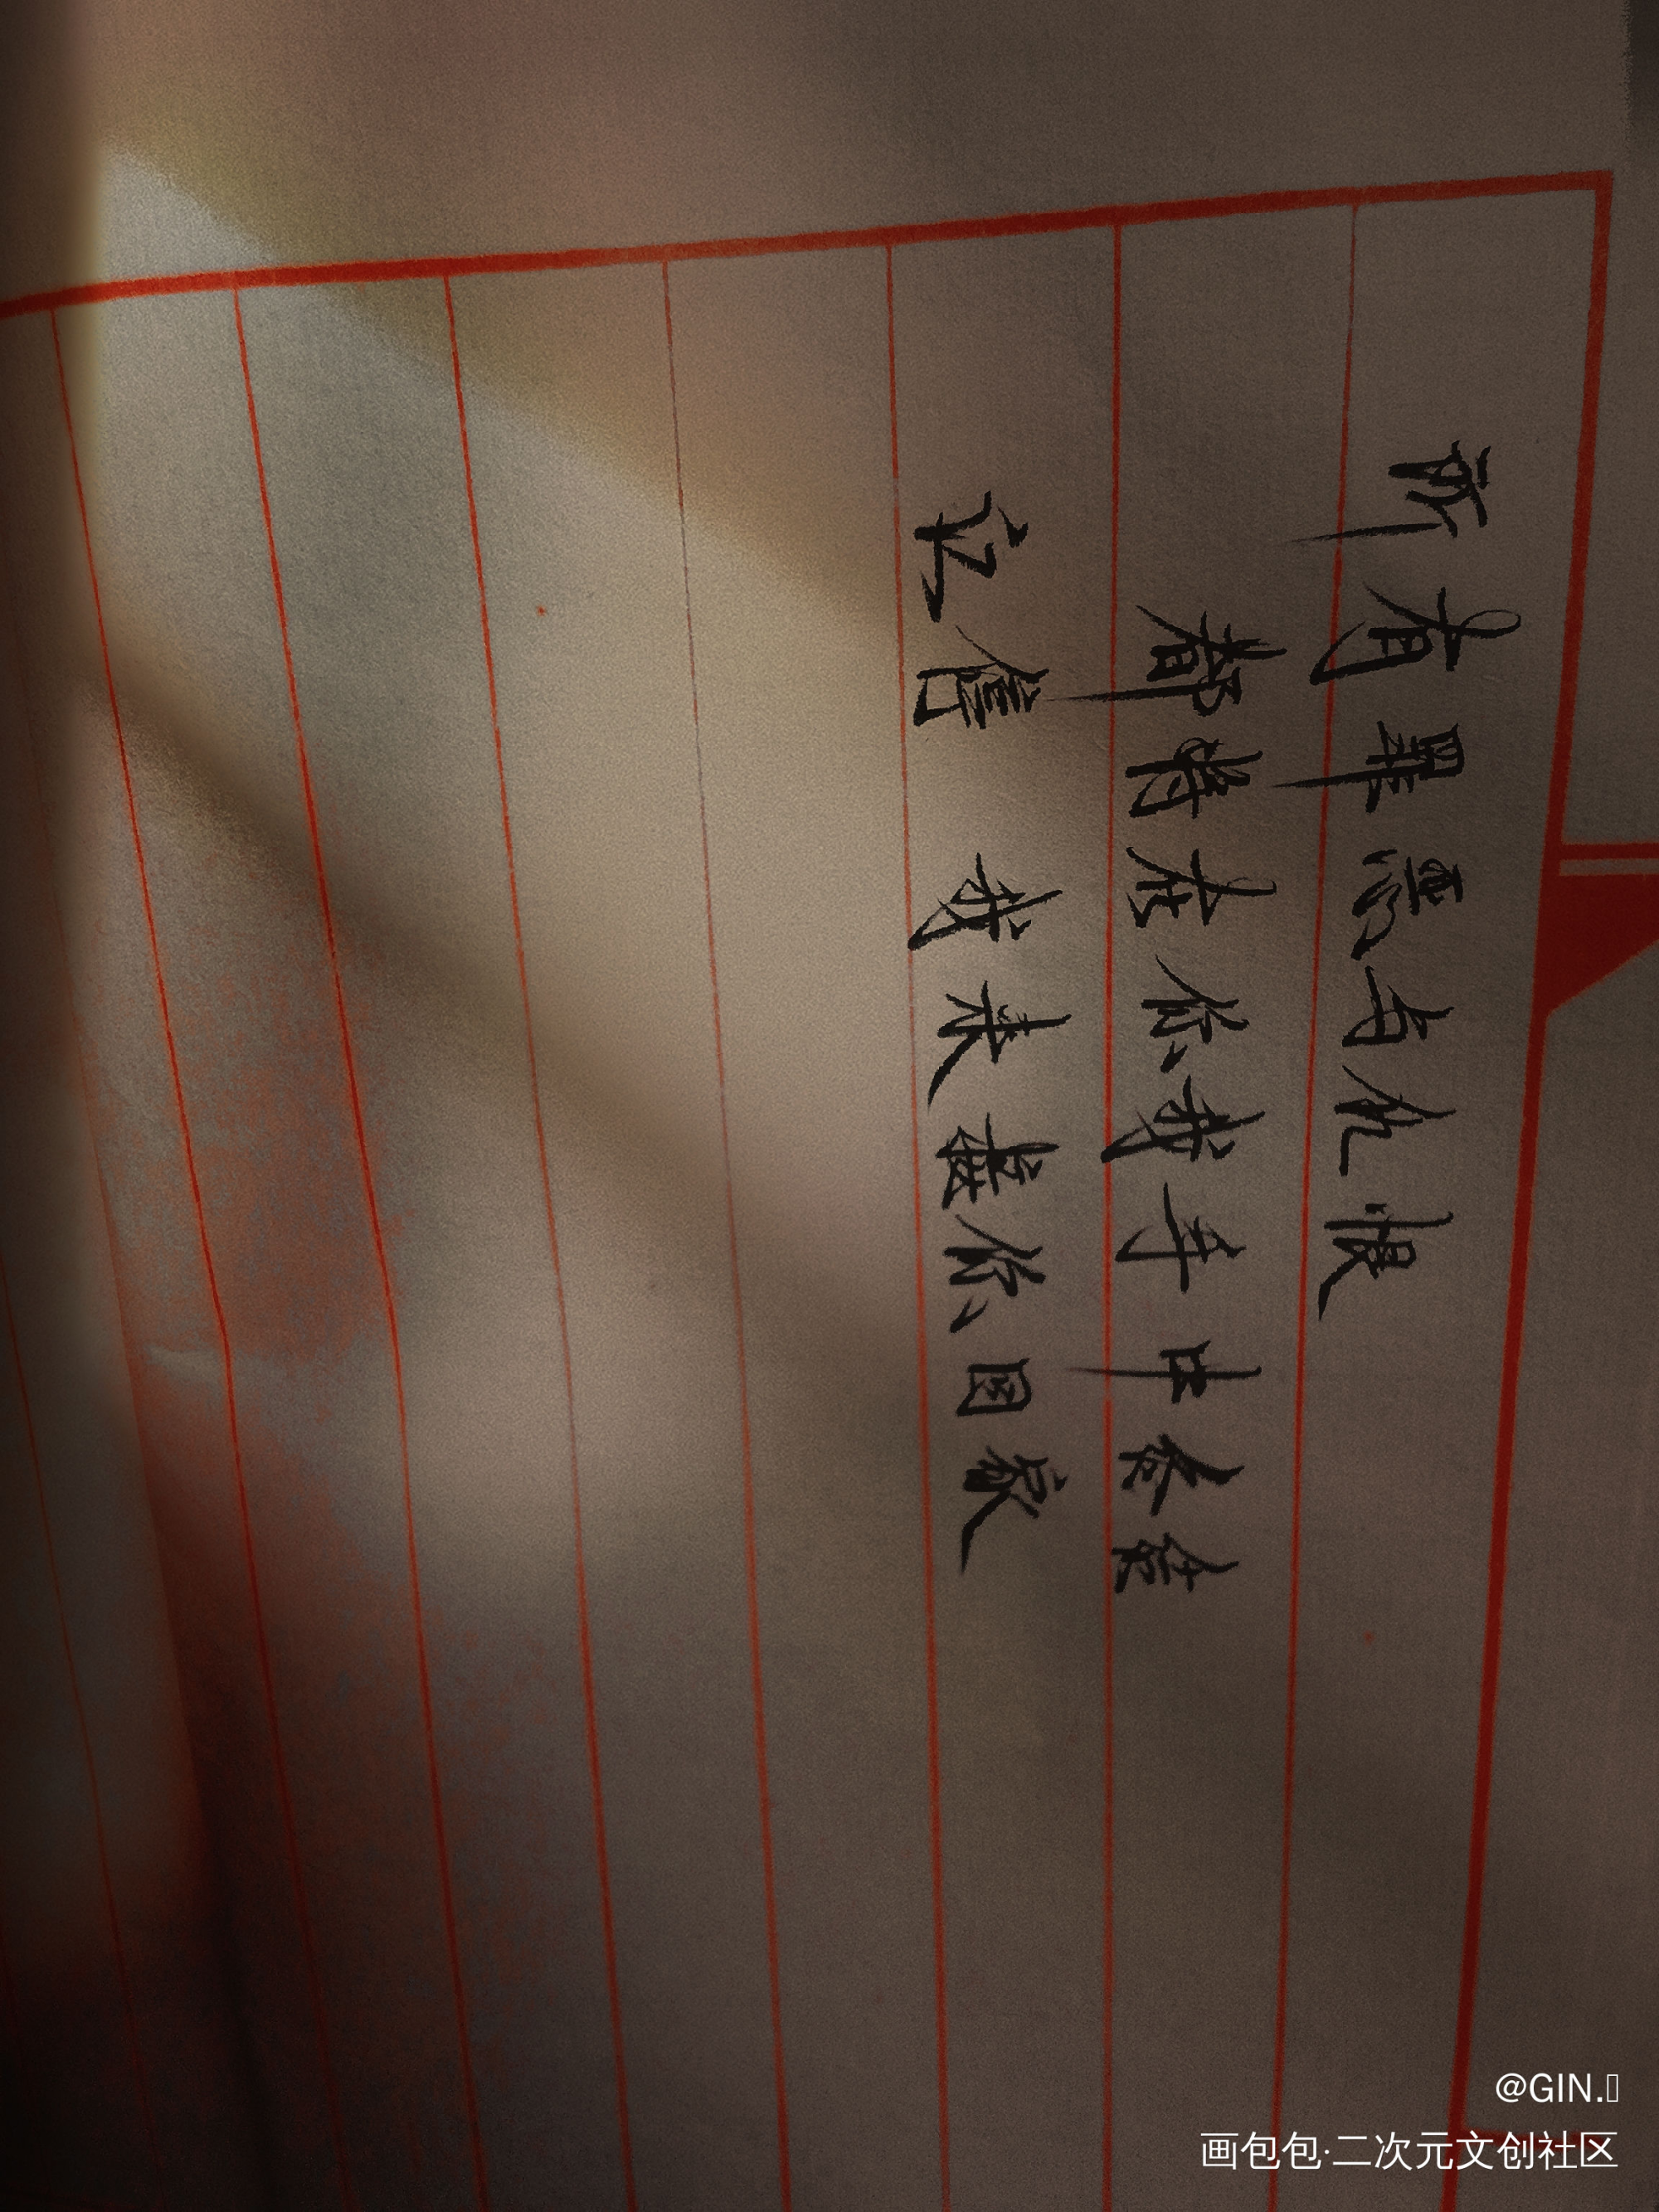 所有罪恶与仇恨
都将在你我手中
记信 我来你回家
@GIN.
画包包·二次元文创社区